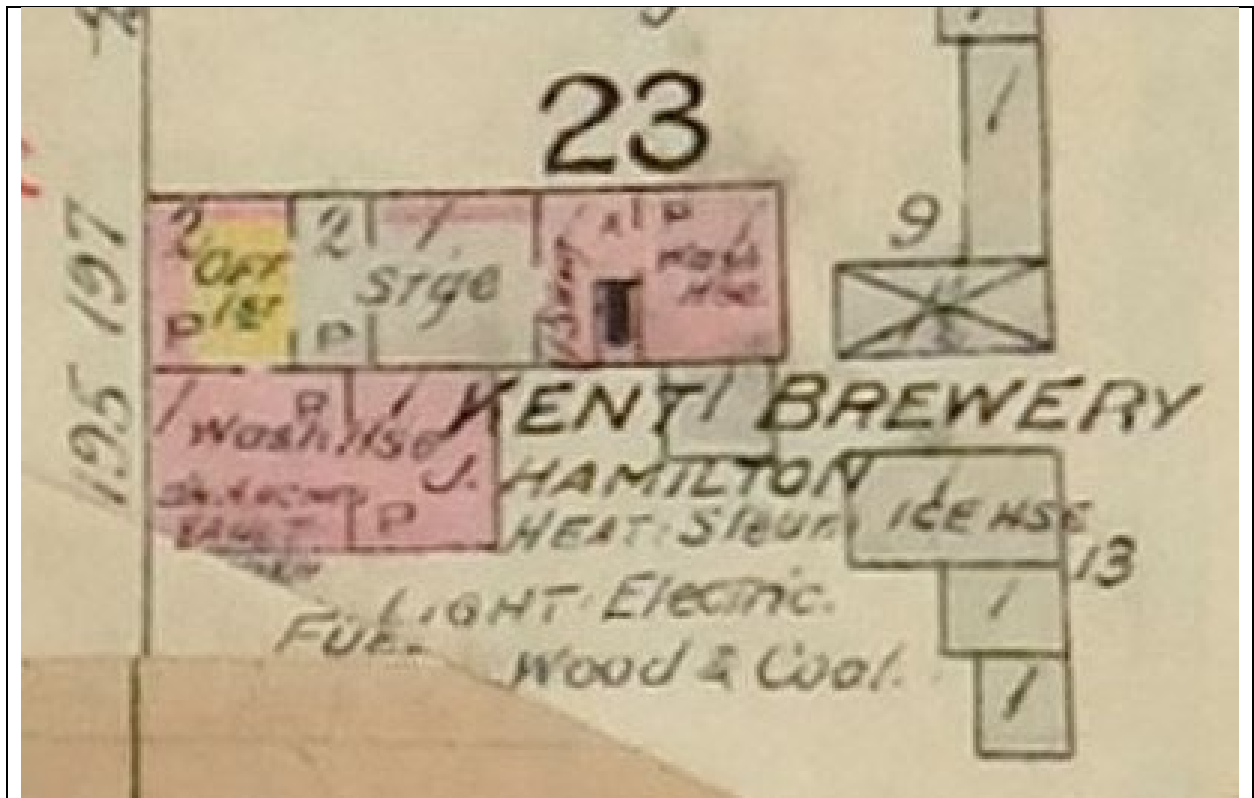 23
197
195
9
2 OFF 1st P
2 P
Stge
1
P
1
Wash Hse
1
1
1
P
Wash Hse
P
KENT BREWERY
J. HAMILTON
HEAT: Steam
LIGHT: Electric.
FUEL
Wood & Coal.
1
ICE HSE
13
1
1